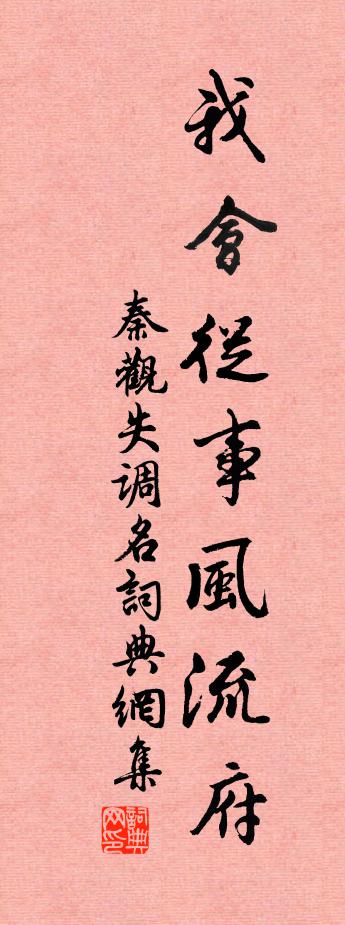 我會從事風流府
秦觀失調名詞典網集
詞典网印